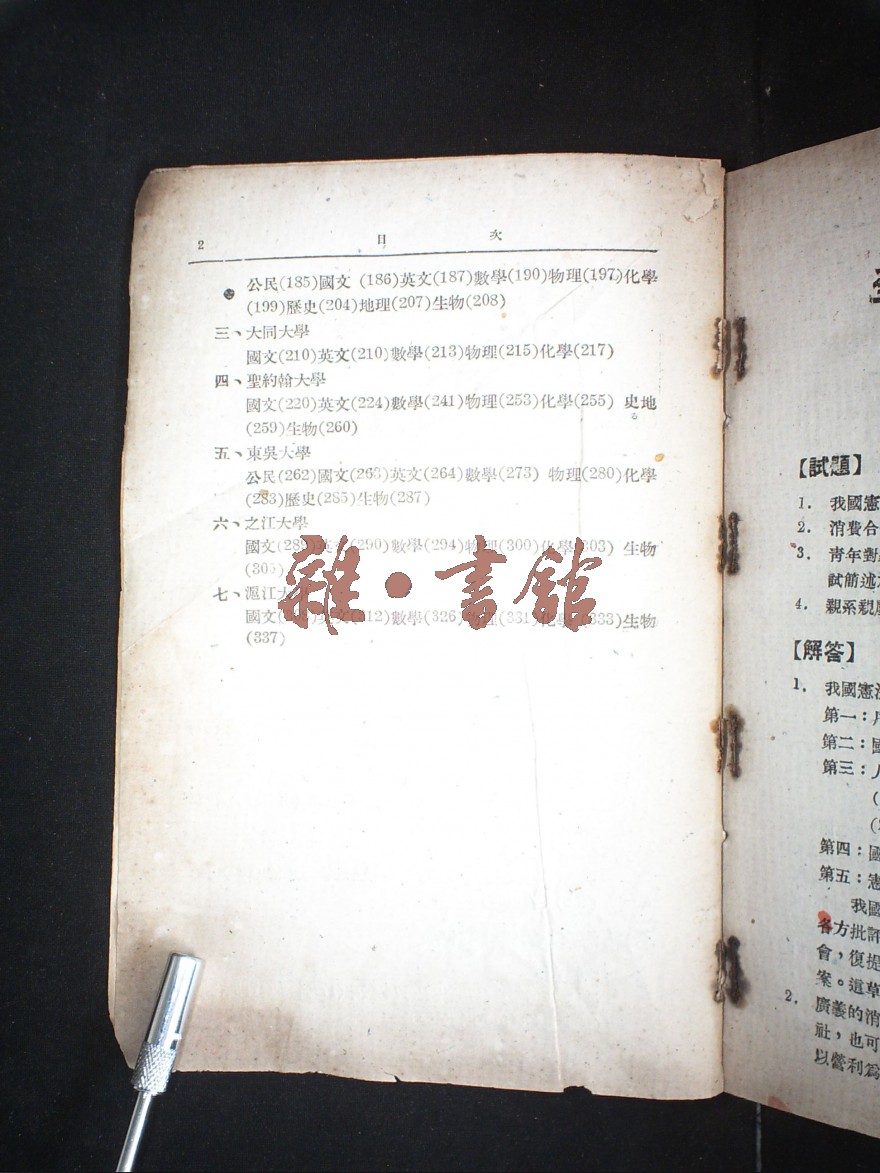 2 目 次
公民(185)國文 (186)英文(187)數學(190)物理(197)化學
(199)歷史(204)地理(207)生物(208)
三、大同大學
國文(210)英文(210)數學(213)物理(215)化學(217)
四、聖約翰大學
國文(220)英文(224)數學(241)物理(253)化學(255) 史地
(259)生物(260)
五、東吳大學
公民(262)國文(263)英文(264)數學(273) 物理(280)化學
(283)歷史(285)生物(287)
六、之江大學
國文(289)英文(290)數學(294)物理(300)化學(303) 生物
七、滬江大
國文 (312)數學(326)物理(331)化學(333)生物
(337)
雜·書館
【試題】
1. 我國憲
2. 消費合
3. 青年對
試簡述
4. 親系親
【解答】
1. 我國憲
第一：
第二：
第三：
第四：國
第五：憲
我國
各方批評
會，復提
案。這草
2. 廣義的消
社，也可
以營利為